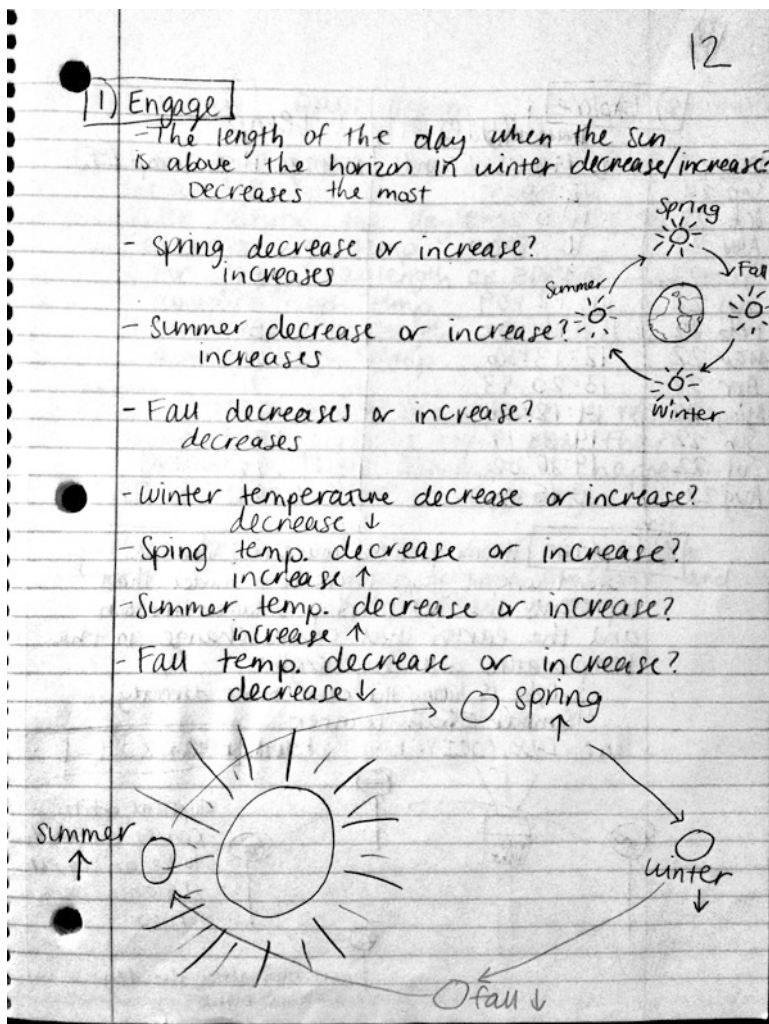 12
1) Engage
- The length of the day when the sun
is above the horizon in winter decrease/increase?
Decreases the most
- Spring decrease or increase?
increases
- Summer decrease or increase?
increases
- Fall decreases or increase?
decreases
Spring
Fall
Summer
Winter
- Winter temperature decrease or increase?
decrease ↓
- Sping temp. decrease or increase?
increase ↑
- Summer temp. decrease or increase?
increase ↑
- Fall temp. decrease or increase?
decrease ↓
spring
↑
summer
↑
winter
↓
fall ↓